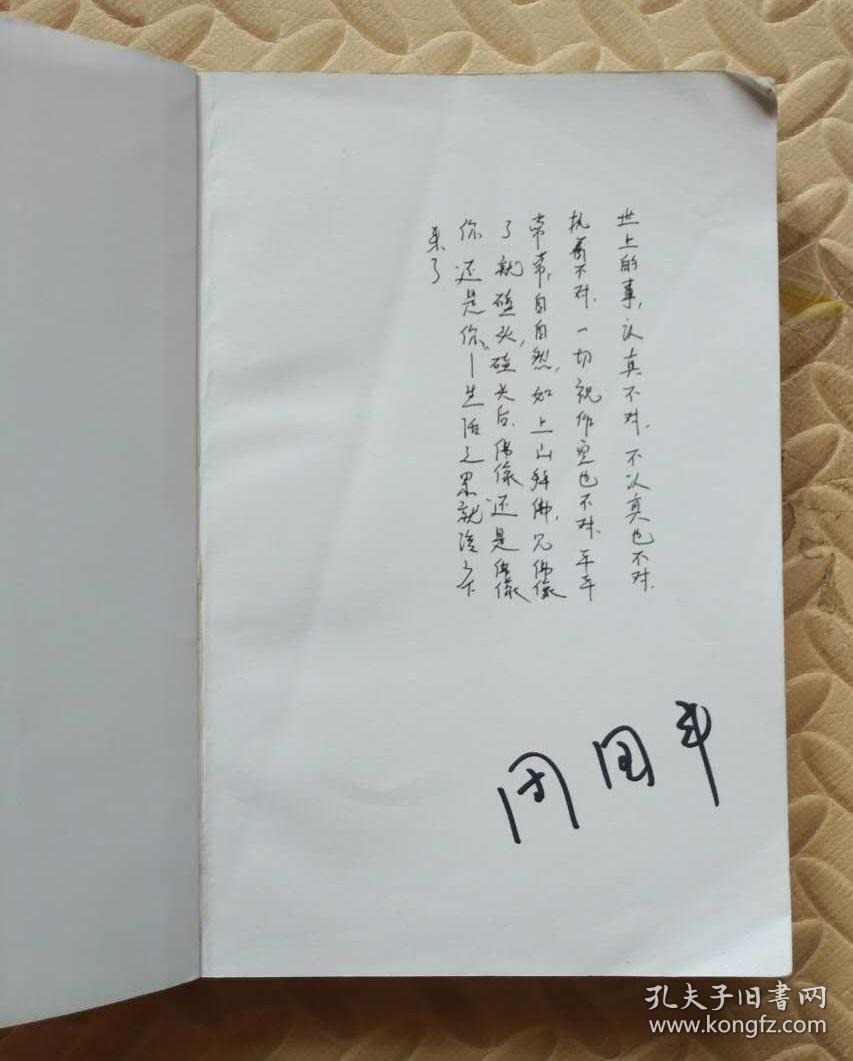 世上的事，认真不对，不认真也不对，
执着不对，一切视作空也不对，平平
常常，自自然，如上山拜佛，见佛像
了就磕头，磕头后，佛像还是佛像
你还是你—生活之累就该少下
来了
周国平
孔夫子旧书网
www.kongfz.com